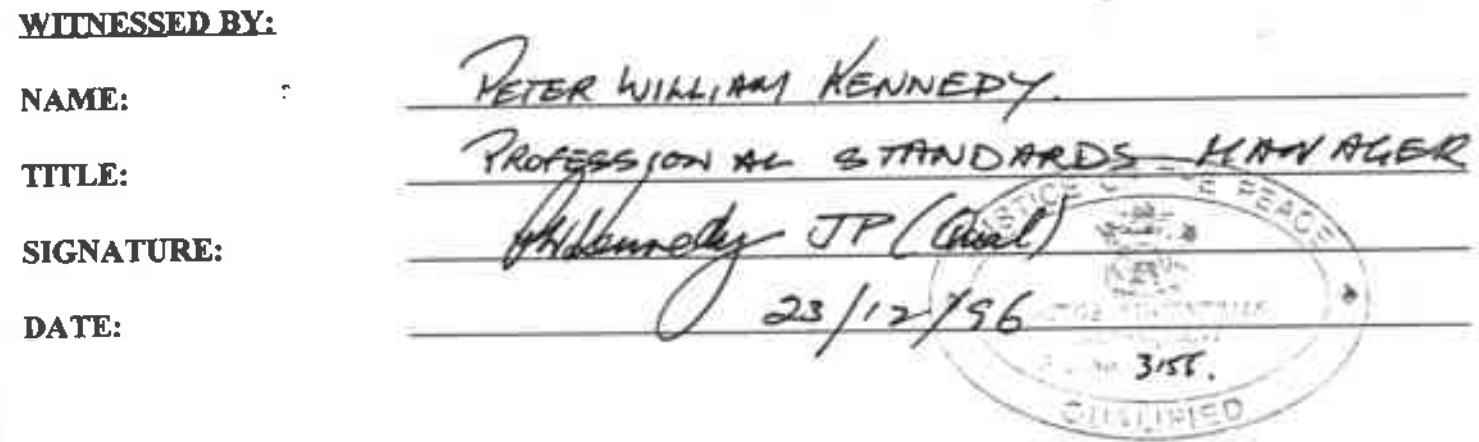 WITNESSED BY:
NAME: PETER WILLIAM KENNEDY.
TITLE: PROFESSIONAL STANDARDS MANAGER
SIGNATURE: PWKennedy JP (Qual)
DATE: 23/12/96
JUSTICE OF THE PEACE
QUALIFIED